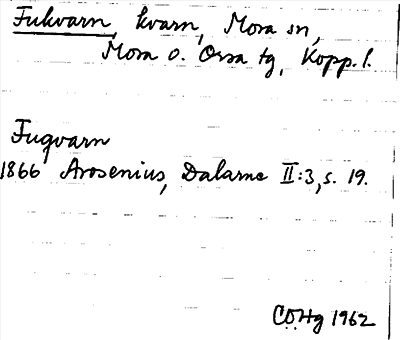 Fukvarn, kvarn, Mora sn,
Mora o. Orsa tg, Kopp. l.
Fuqvarn
1866 Arosenius, Dalarne II:3, s. 19.
CÖHg 1962